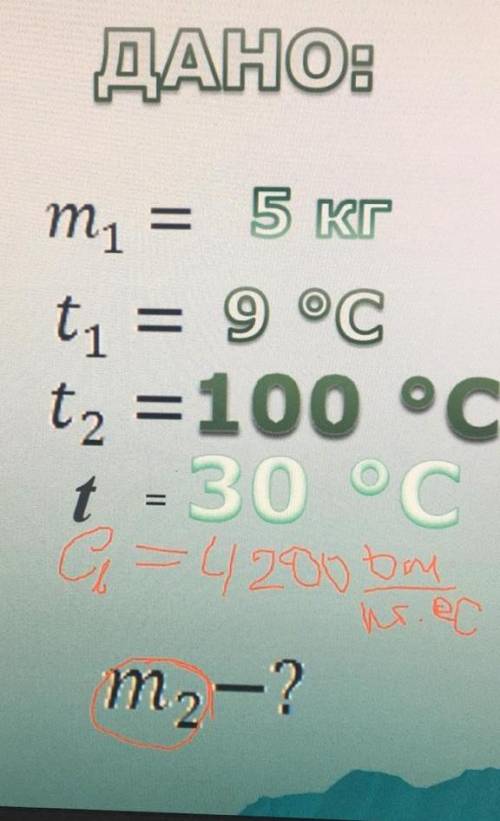 ДАНО:
m₁ = 5 кг
t₁ = 9 °C
t₂ = 100 °C
t = 30 °C
= 4200
m₂ – ?